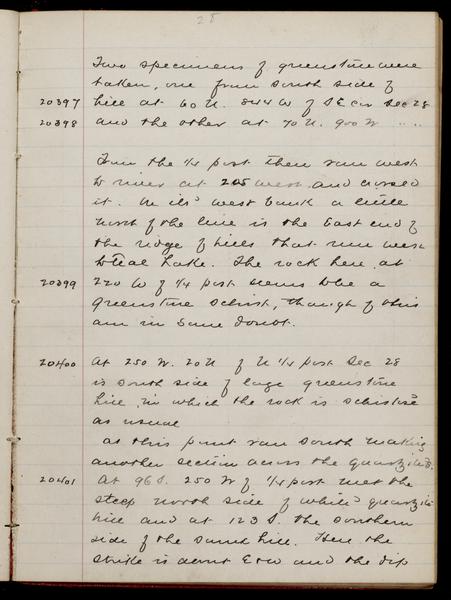 28
Two specimens of greenstone were
taken, one from south side of
20397 hill at 60 N. 844 W of S E cor Sec 28
20398 and the other at 70 N. 900 W " "
From the 1/4 post then ran west
to river at 205 west and crossed
it. On its west bank a little
north of the line is the East end of
the ridge of hills that run west
to Teal Lake. The rock here at
20399 220 W of 1/4 post seems to be a
greenstone schist, though of this
am in some doubt.
20400 At 250 W. 20 N of N 1/4 post Sec 28
is south side of large greenstone
hill in which the rock is schistose
as usual
at this point ran south making
another section across the quartzites.
20401 At 96 S. 250 W of 1/4 post met the
steep north side of white quartzite
hill and at 123 S. the southern
side of the same hill. Here the
strike is about E & W and the dip